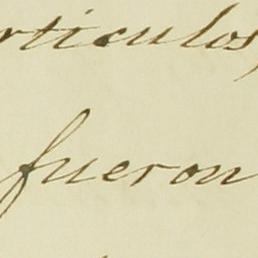 rticulos,
fueron